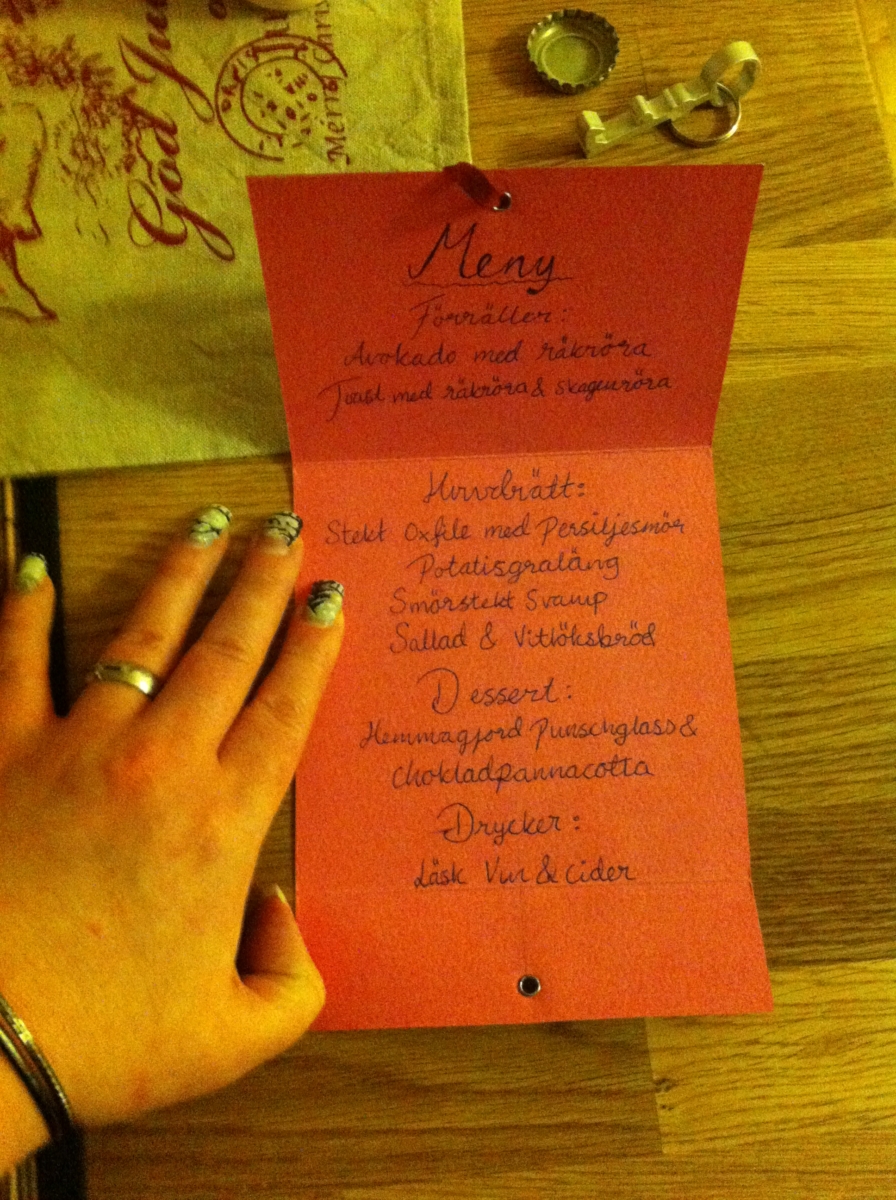 God Jul
Merry Chris
Meny
Förrätter:
Avokado med räkröra
Toast med räkröra & skagenröra
Huvudrätt:
Stekt Oxfile med Persiljesmör
Potatisgratäng
Smörstekt Svamp
Sallad & Vitlöksbröd
Dessert:
Hemmagjord Punschglass &
chokladpannacotta
Drycker:
Läsk Vin & Cider